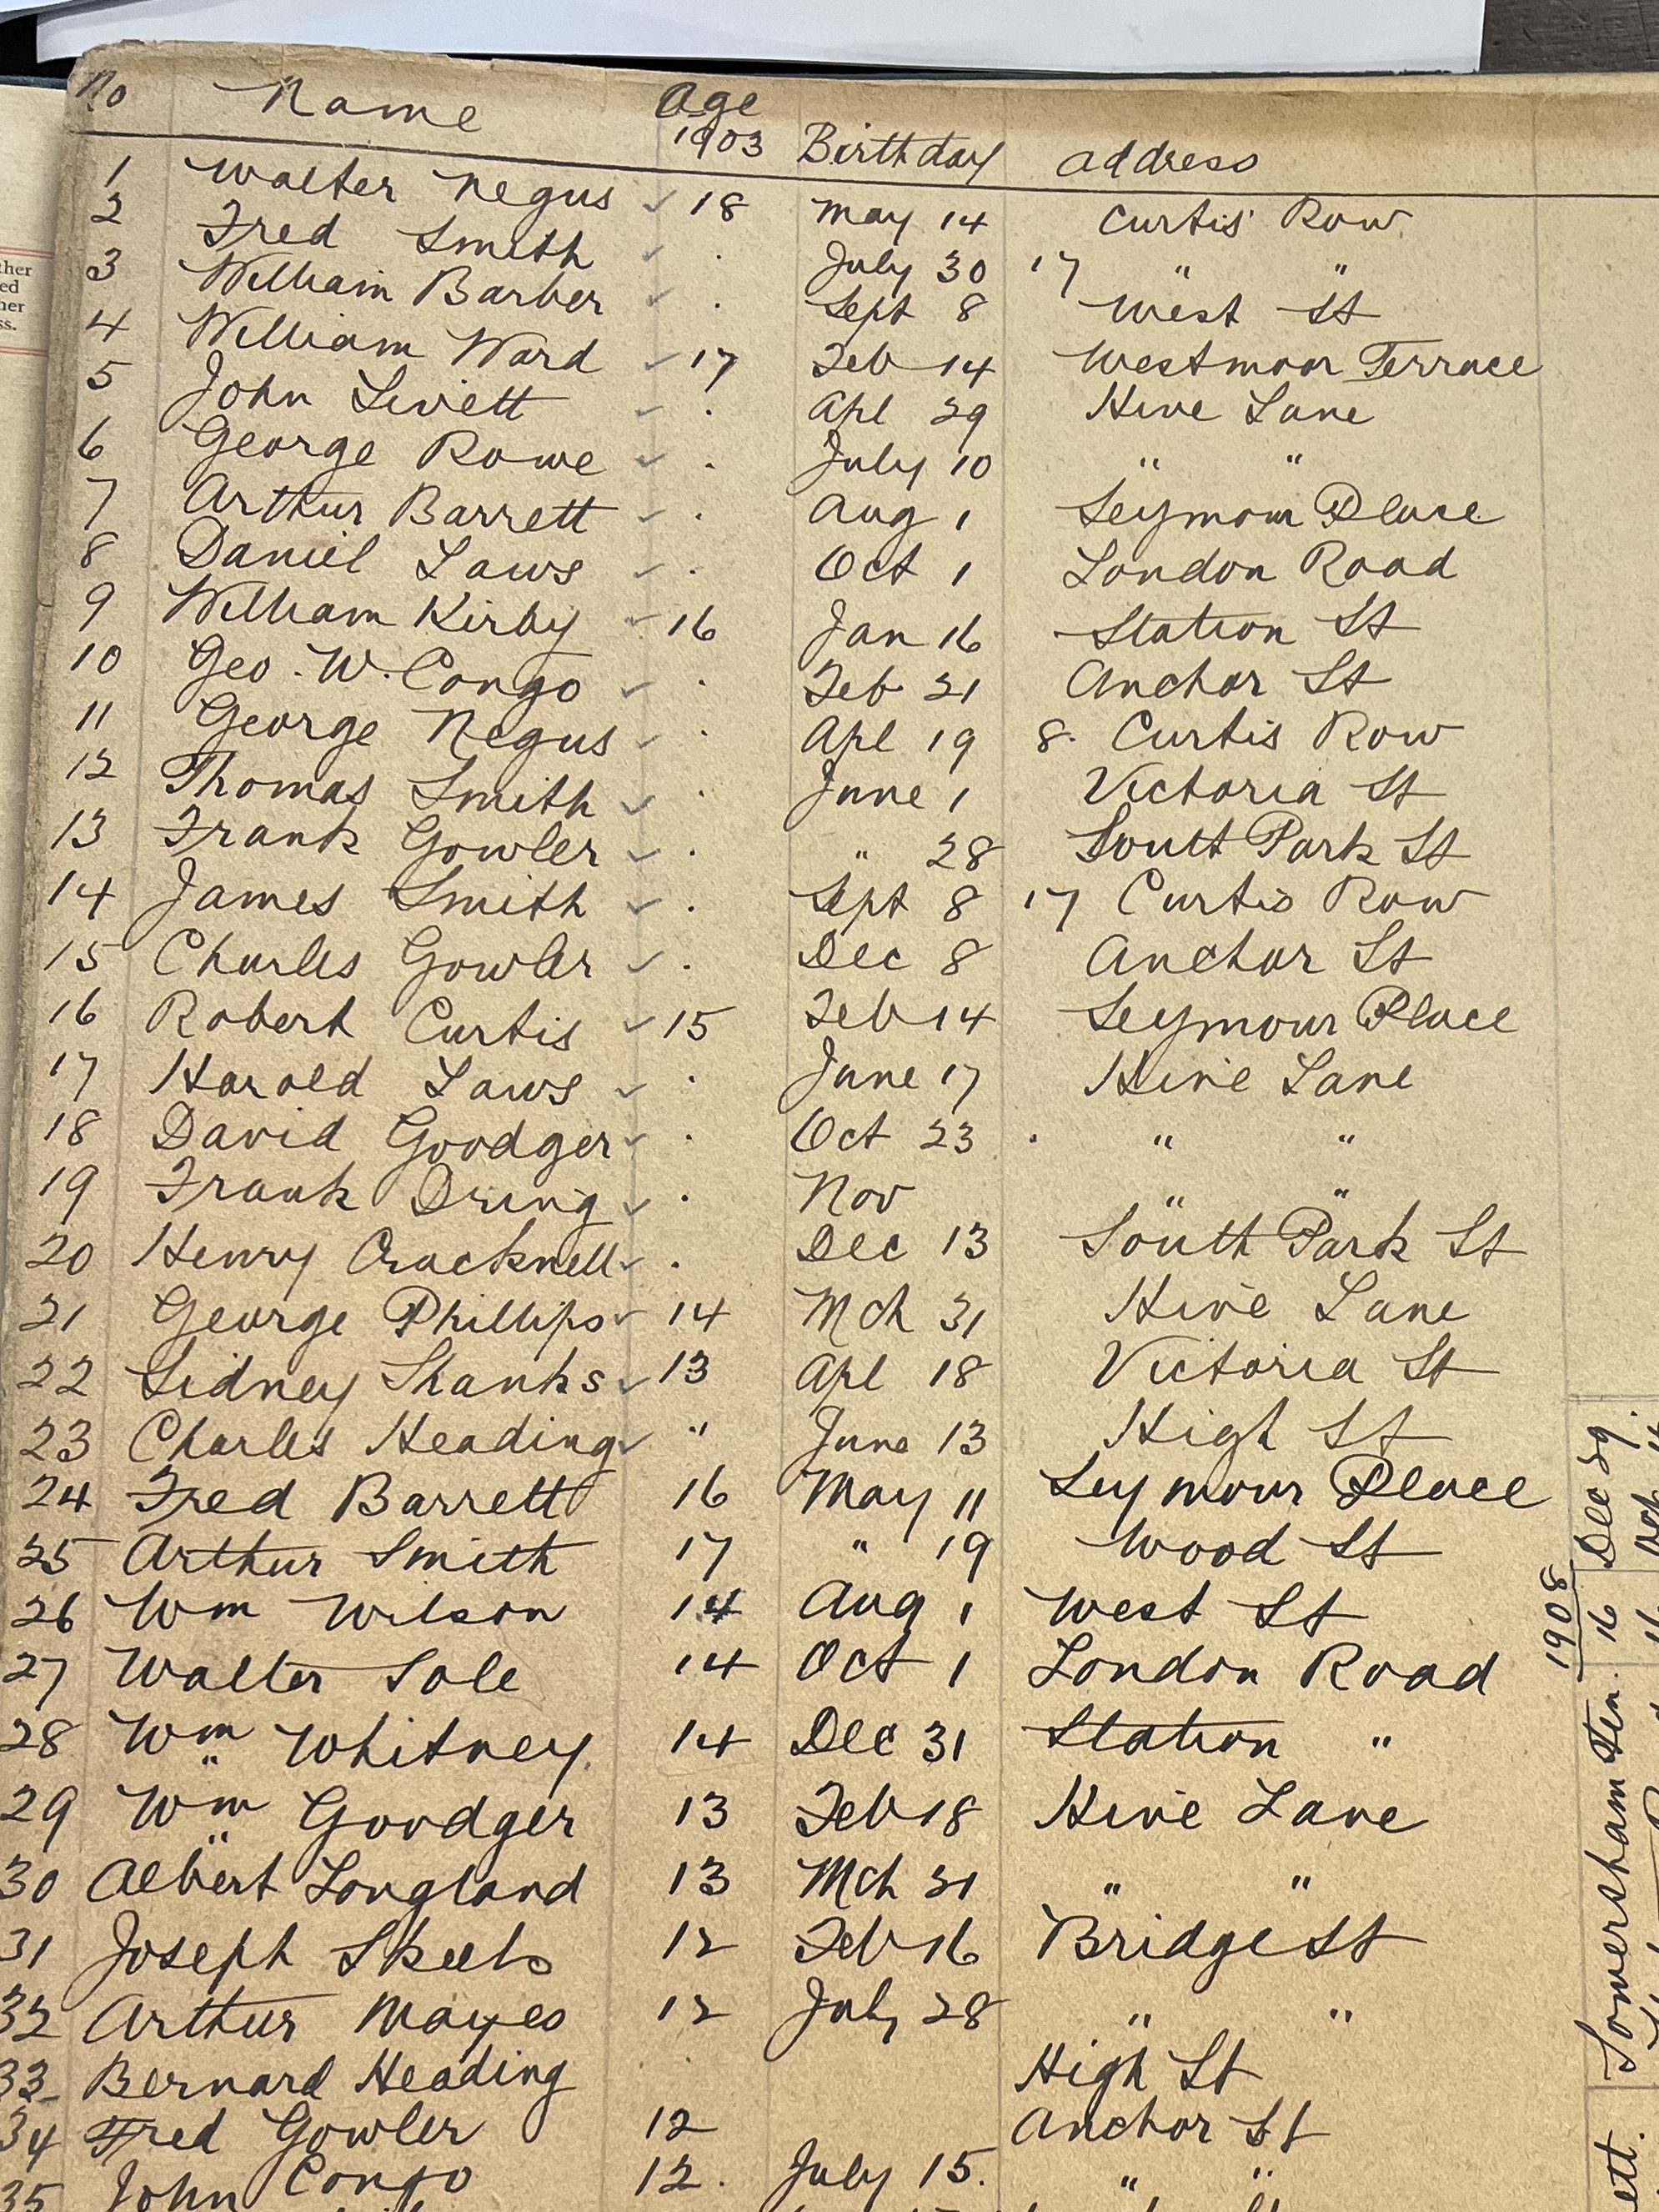 No Name Age 1903 Birthday address
1 Walter Negus ✓ 18 May 14 Curtis Row
2 Fred Smith ✓ . July 30 17 " "
3 William Barber ✓ . Sept 8 West St
4 William Ward ✓ 17 Feb 14 Westmoor Terrace
5 John Livett ✓ . Apl 29 Hive Lane
6 George Rowe ✓ . July 10 " "
7 Arthur Barrett ✓ . Aug 1 Seymour Place
8 Daniel Laws ✓ . Oct 1 London Road
9 William Kirby ✓ 16 Jan 16 Station St
10 Geo. W. Congo ✓ . Feb 21 Anchor St
11 George Negus ✓ . Apl 19 8. Curtis Row
12 Thomas Smith ✓ . June 1 Victoria St
13 Frank Gowler ✓ . " 28 South Park St
14 James Smith ✓ . Sept 8 17 Curtis Row
15 Charles Gowler ✓ . Dec 8 Anchor St
16 Robert Curtis ✓ 15 Feb 14 Seymour Place
17 Harold Laws ✓ . June 17 Hive Lane
18 David Goodger ✓ . Oct 23 . " "
19 Frank Dring ✓ . Nov " "
20 Henry Cracknell ✓ . Dec 13 South Park St
21 George Phillips ✓ 14 Mch 31 Hive Lane
22 Sidney Shanks ✓ 13 Apl 18 Victoria St
23 Charles Heading ✓ " June 13 High St
24 Fred Barrett 16 May 11 Seymour Place
25 Arthur Smith 17 " 19 Wood St
26 Wm Wilson 14 Aug 1 West St
27 Walter Sole 14 Oct 1 London Road
28 Wm Whitney 14 Dec 31 Station "
29 Wm Goodger 13 Feb 18 Hive Lane
30 Albert Longland 13 Mch 31 " "
31 Joseph Skeels 12 Feb 16 Bridge St
32 Arthur Mayes 12 July 28 " "
33 Bernard Heading High St
34 Fred Gowler 12 Anchor St
35 John Congo 12. July 15. " "
1908
Somersham Fen. 16 Dec 29.
16 Oct
ett.
ther
ed
her
ss.